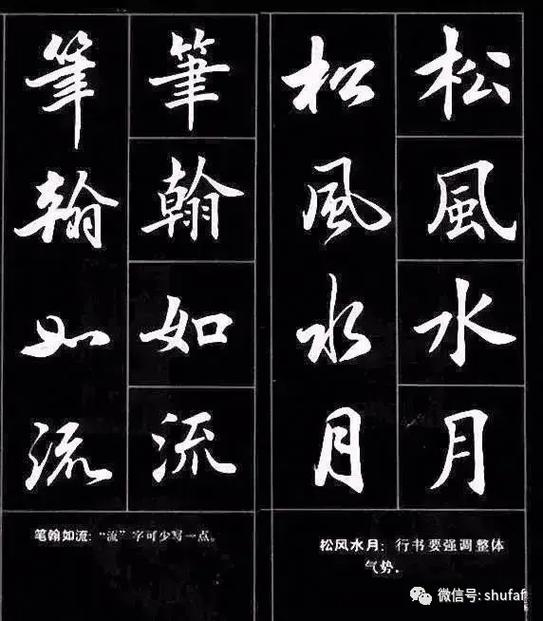 松風水月
松風水月
筆翰如流
筆翰如流
松风水月：行书要强调整体
气势．
笔翰如流：“流”字可少写一点。
微信号: shufaf